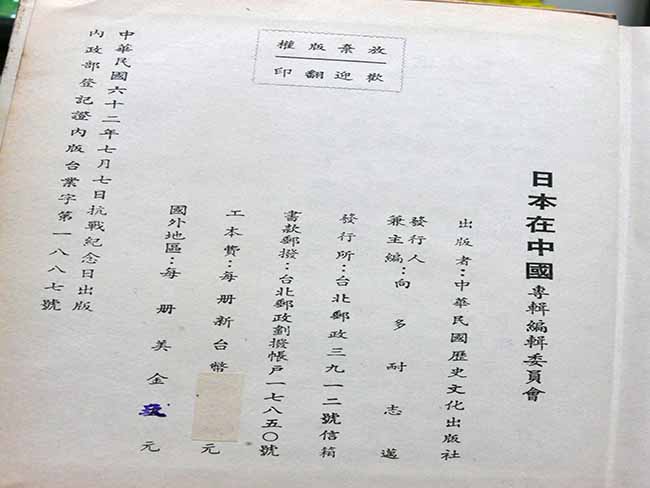 放棄版權
歡迎翻印
日本在中國專輯編輯委員會
出版者：中華民國歷史文化出版社
發行人
兼主編：向多耐志邁
發行所：台北郵政三九一二號信箱
書款郵撥：台北郵政劃撥帳戶一七八五〇號
工本費：每冊新台幣 元
國外地區：每冊美金 元
中華民國六十二年七月七日抗戰紀念日出版
內政部登記證內版台業字第一八八七號